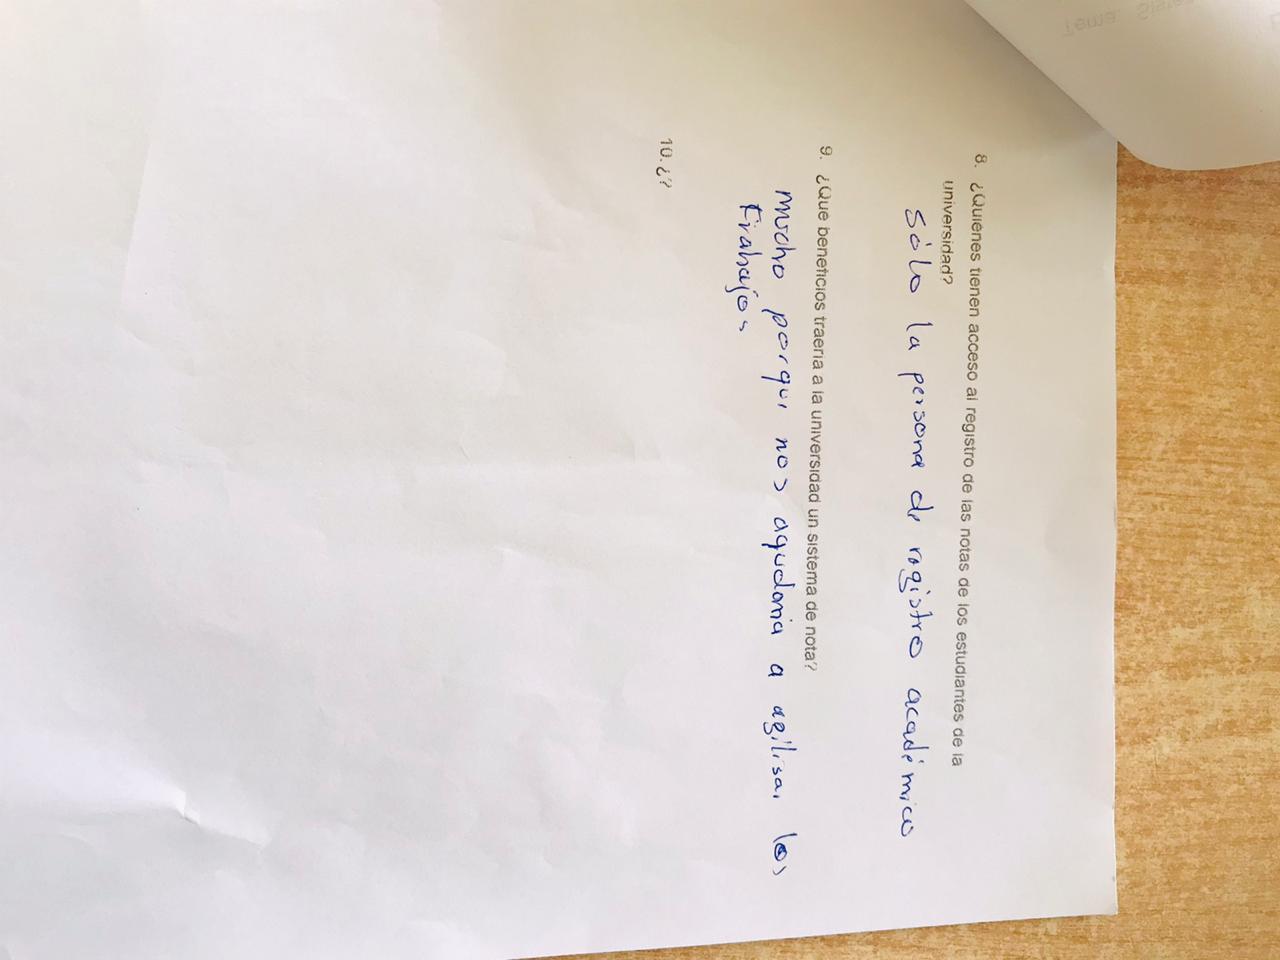 8. ¿Quiénes tienen acceso al registro de las notas de los estudiantes de la
universidad?
Sólo la persona de registro académico
9. ¿Qué beneficios traería a la universidad un sistema de nota?
mucho porque nos ayudaria a agilisar los
trabajos
10. ¿?
Tema